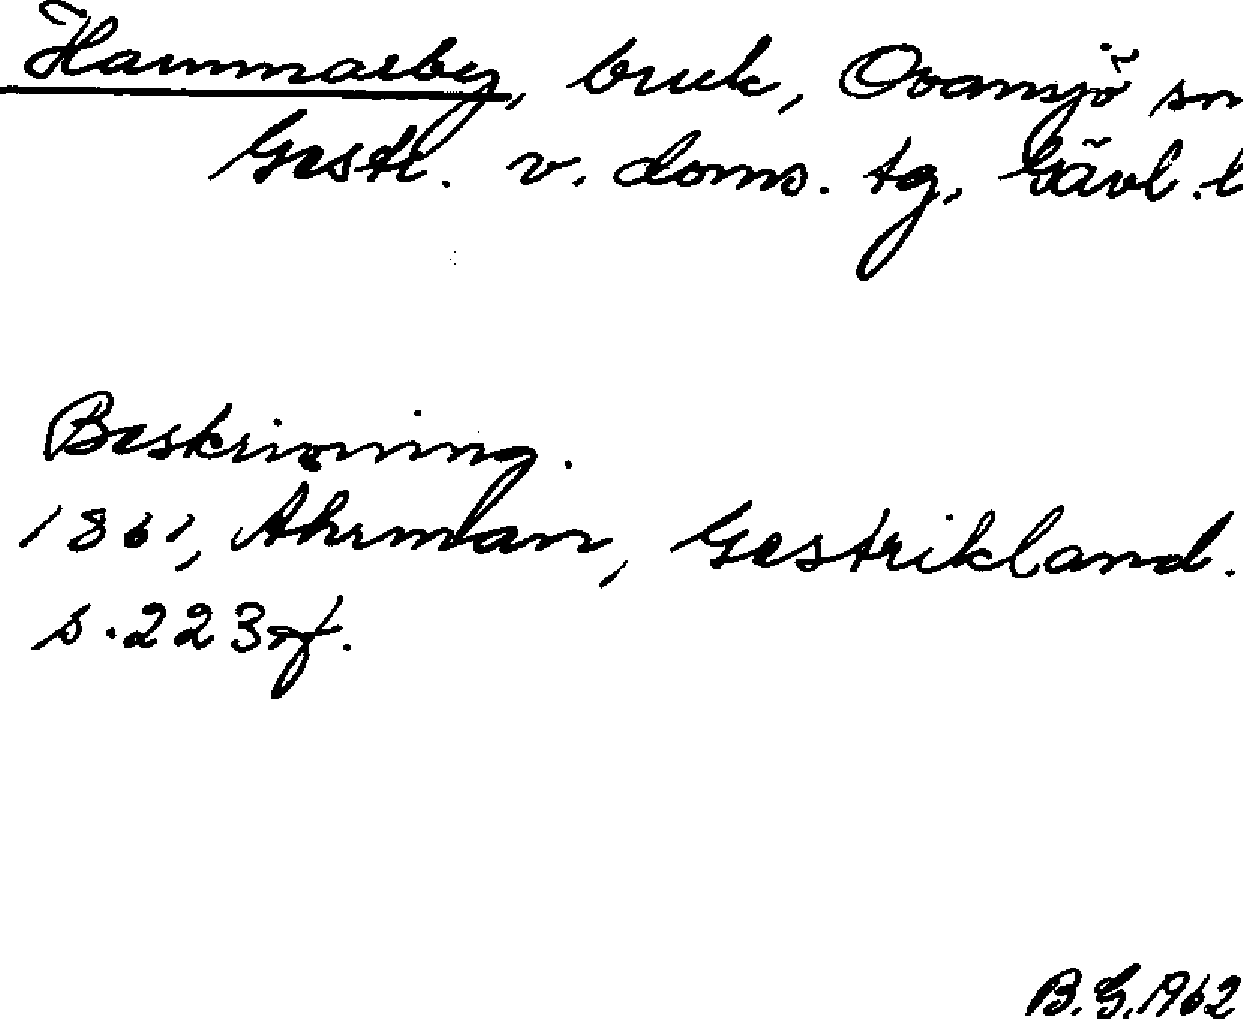 Hammarby, bruk, Ovansjö sn
Gestr. v. doms. tg, Gävl. l
Beskrivning.
1861, Ahrman, Gestrikland.
s. 223 f.
B.G. 1962